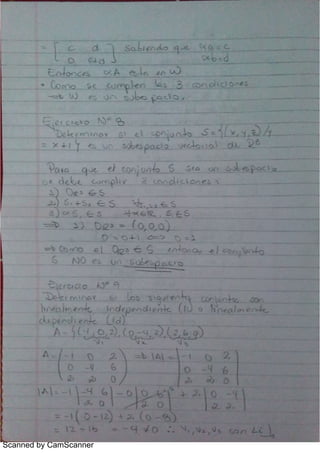 = [ c d ] Sabiendo que αa=c
[ 0 αd ] αb=d
Entonces αA esta en W
• Como se cumplen las 3 condiciones
⇒ W es un subespacio.
Ejercicio Nº 8
Determinar si el conjunto S={(x,y,z)/y
= x+1} es un subespacio vectorial de R³
Para que el conjunto S sea un subespacio
se debe cumplir 3 condiciones:
1) 0R³ ∈ S
2) S₁+S₂ ∈ S
3) αS₁ ∈ S ∀α∈R, S∈S
⇒ 1) 0R³ = (0,0,0)
0=0+1 ⇔ 0=1
⇒ Como el 0R³ ∉ S entonces el conjunto
S NO es un subespacio
Ejercicio Nº 9
Determinar si los siguientes conjuntos son
linealmente independiente (Li) o linealmente
dependiente (Ld)
A={(-1,0,2),(0,-4,2),(2,6,0)}
V₁ V₂ V₃
A= ( -1 0 2 ) ⇒ |A| = | -1 0 2 |
( 0 -4 6 ) | 0 -4 6 |
( 2 2 0 ) | 2 2 0 |
|A|= -1 | -4 6 | - 0 | 0 6 | + 2 | 0 -4 |
| 2 0 | | 2 0 | | 2 2 |
= -1(0-12) + 2(0-8)
= 12 - 16 = -4 ≠ 0 ∴ V₁,V₂,V₃ son Li
Scanned by CamScanner